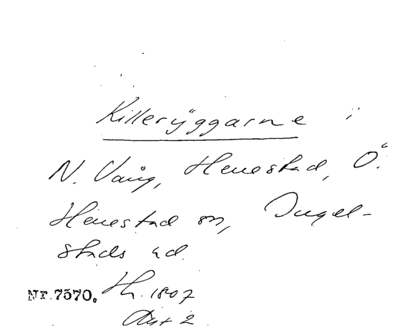 Killeryggarne i
N. Vång, Herrestad, Ö.
Herrestad sn, Ingel-
stads hd.
Nr. 7570. Lh. 1807
Akt 2